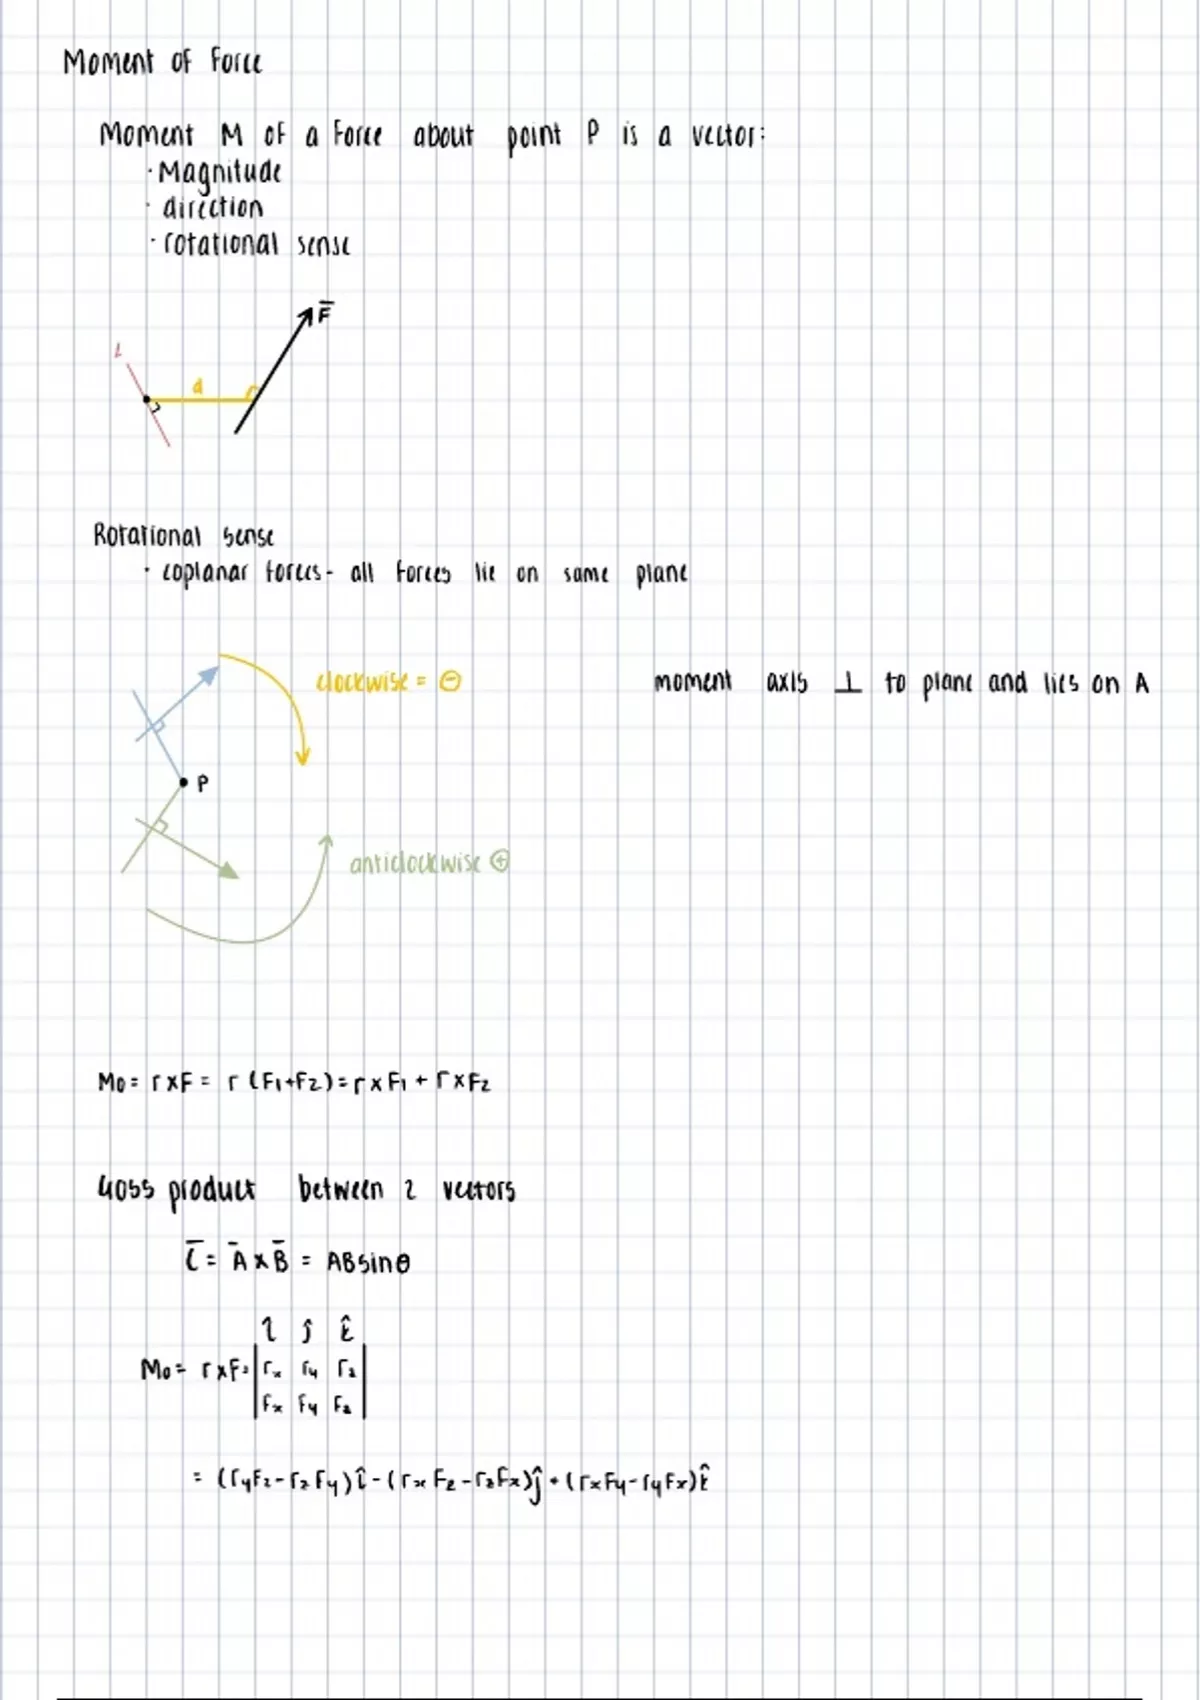 Moment of Force
Moment M of a Force about point P is a vector:
· Magnitude
· direction
· rotational sense
F̅
L
d
Rotational sense
· coplanar forces - all forces lie on same plane
clockwise = ⊖
moment axis ⊥ to plane and lies on A
P
anticlockwise ⊕
Mo = r x F = r (F₁+F₂) = r x F₁ + r x F₂
Cross product between 2 vectors
C̅ = A̅ x B̅ = ABsinθ
î ĵ k̂
Mo = r x F = | rx ry rz |
Fx Fy Fz
= (ryFz - rzFy) î - (rxFz - rzFx) ĵ + (rxFy - ryFx) k̂